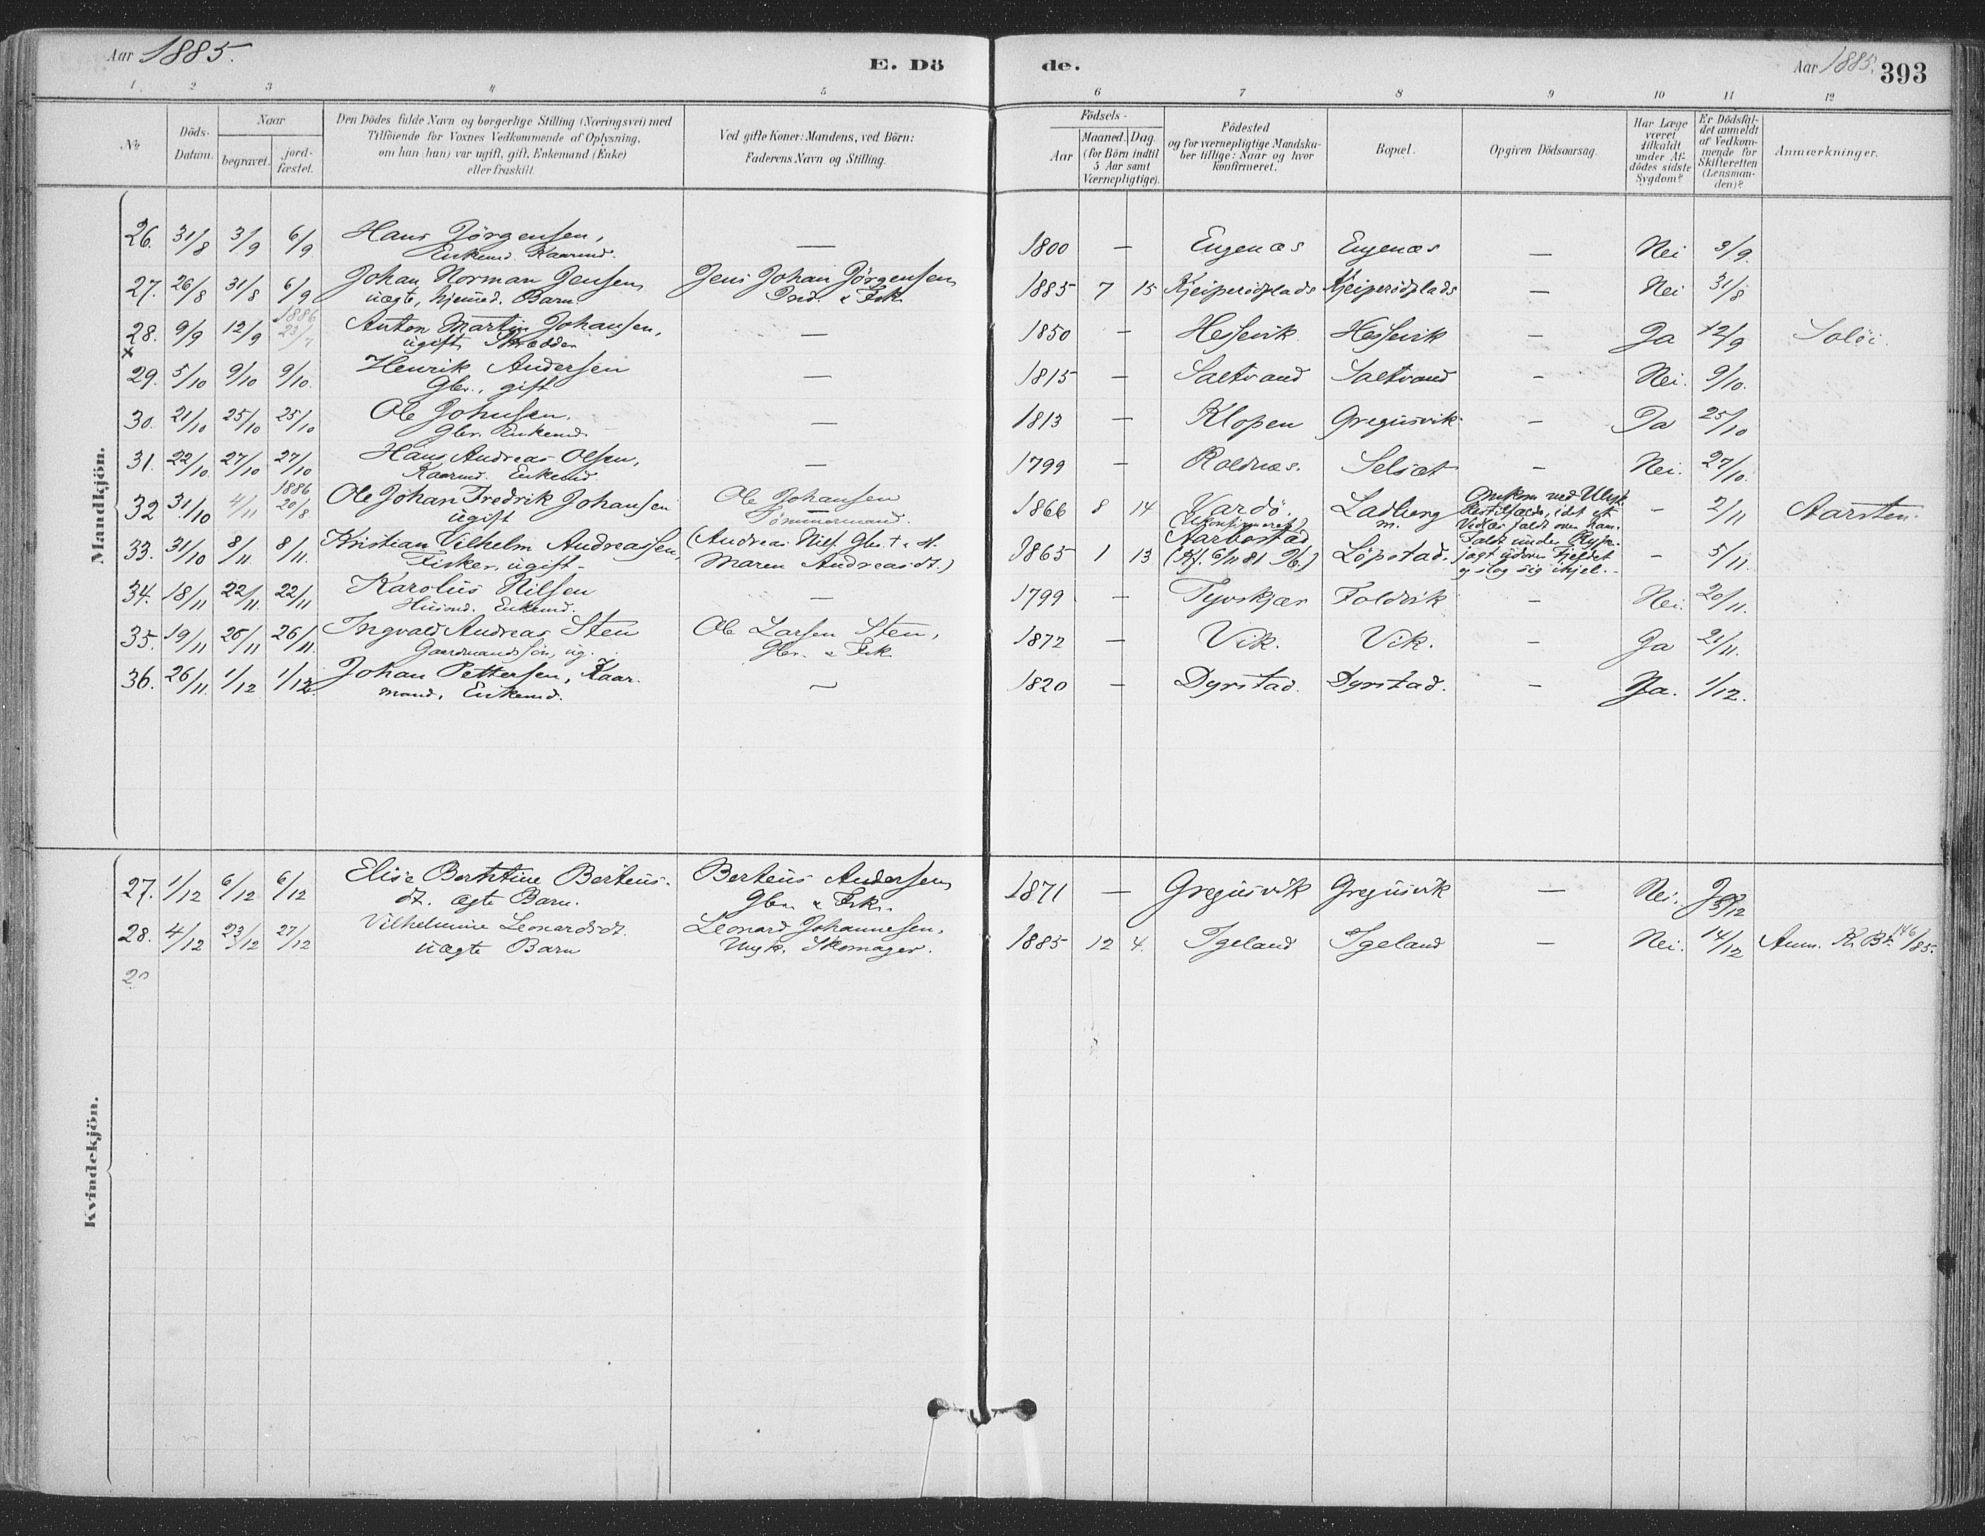 Aar 1885.
E. Dö de.
Aar 1885. 393
1 2 3 4 5 6 7 8 9 10 11 12
No
Döds-Datum.
Naar
begravet.
jord-fæstet.
Den Dödes fulde Navn og borgerlige Stilling (Næringsvei) med
Tilföiende for Voxnes Vedkommende af Oplysning,
om han (hun) var ugift, gift, Enkemand (Enke)
eller fraskilt.
Ved gifte Koner: Mandens, ved Börn:
Faderens Navn og Stilling.
Födsels-
Aar
Maaned. Dag.
(for Börn indtil
5 Aar samt
Værnepligtige).
Födested
og for værnepligtige Mandska-
ber tillige: Naar og hvor
konfirmeret.
Bopæl.
Opgiven Dödsaarsag.
Har Læge
været
tilkaldt
under Af-
dödes sidste
Sygdom?
Er Dödsfal-
det anmeldt
af Vedkom-
mende for
Skifteretten
(Lensman-
den)?
Anmærkninger.
Mandkjön.
26. 31/8 3/9 6/9 Hans Jörgensen, — 1800 — Engenæs Engenæs — Nei 3/9
Enkemd. Kaarmd.
27. 26/8 31/8 6/9 Johan Norman Jensen, Jens Johan Jörgensen 1885 7 15 Kjeiperödplads Kjeiperödplads — Nei 31/8
uægte, hjemmed. Barn Ind. & Fisk.
28. 9/9 12/9 1886 23/7 Anton Martin Johansen, — 1850 — Hessevik. Hessevik — Ja 12/9 Salöi.
x ugift, Skrædder
29. 5/10 9/10 9/10. Henrik Andersen — 1815 — Saltvand Saltvand — Nei. 9/10.
Gbr., gift
30. 21/10 25/10 25/10 Ole Johnsen. — 1813 — Klopen Gregusvik — Ja 25/10
Gbr. Enkemd.
31. 22/10 27/10 27/10 Hans Andreas Olsen, — 1799 — Roldnæs. Selsæt — Nei. 27/10.
Kaarmd. Enkemd
32 31/10 4/11 1886 20/8 Ole Johan Fredrik Johansen Ole Johansen 1866 8 14 Vardö. Ladberg Omkom ved Ulyk- — 2/11 Aarsten.
ugift Tömmermand. (Ukonfirmeret) m.
33. 31/10 8/11 8/11. Kristian Vilhelm Andreassen, (Andreas Nils. Gbr. † & H. 1865 1 13 Aarbostad Löpstad. Faldt under Ryp- — 5/11.
Fisker, ugift- Maren Andreasdt.) (Kf. 6/11 81 Ib.) jagt udover Fjeldet
og slog sig ihjel.
34. 18/11 22/11. 22/11 Karolus Nilsen — 1799 — Tyvskjær Foldvik — Nei. 20/11.
Husmd. Enkemd.
35. 19/11 26/11 26/11. Ingvald Andreas Sten Ole Larsen Sten, 1872 — Vik. Vik. — Ja 21/11.
Gaardmandssön, ug. Gbr. & Fisk
36. 26/11. 1/12 1/12. Johan Pettersen, Kaar- — 1820 — Dyrstad. Dyrstad. — Ja. 1/12.
mand, Enkemd.
Kvindekjön.
27. 1/12 6/12 6/12 Elise Berntine Berteus- Berteus Andersen, 1871 — Gregusvik Gregusvik — Nei. Ja
dt. ægte Barn. Gbr. & Fisk.
28. 4/12 23/12 27/12 Vilhelmine Leonardsdt. Leonard Johannesen, 1885 12 4. Igeland Igeland — Nei. 14/12 Anm. K. Bt. 146/85.
uægte Barn Ungk. Skomager.